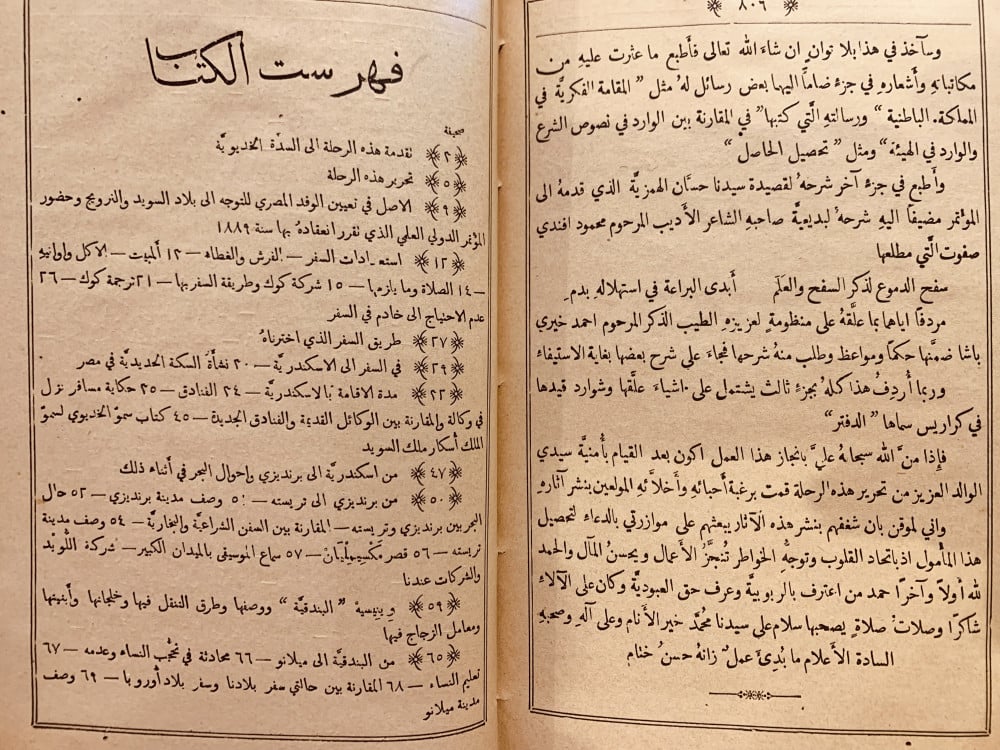 ٨٠٦
وسآخذ في هذا بلا توان ان شاءَ الله تعالى فأَطبع ما عثرت عليهِ من
مكاتباتهِ وأَشعارهِ في جزءٍ ضامًّا اليها بعض رسائل لهُ مثل ”المقامة الفكريَّة في
المملكة الباطنية“ ورسالتهِ الَّتي كتبها” في المقارنة بين الوارد في نصوص الشرع
والوارد في الهيئة“ ومثل ”تحصيل الحاصل“
وأَطبع في جزءٍ آخر شرحهُ لقصيدة سيدنا حسَّان الهمزيَّة الذي قدمهُ الى
المؤتمر مضيفًا اليهِ شرحهُ لبديعيَّة صاحبهِ الشاعر الأَديب المرحوم محمود افندي
صفوت الَّتي مطلعها
سفح الدموع لذكر السفح والعلمِ أَبدى البراعة في استهلالهِ بدمِ
مردفًا اياها بما علَّقهُ على منظومةٍ لعزيزهِ الطيب الذكر المرحوم احمد خيري
باشا ضمَّنها حكمًا ومواعظ وطلب منهُ شرحها فجاءَ على شرح بعضها بغاية الاستيفاء
وربما أُردِفُ هذا كلهُ بجزءٍ ثالث يشتمل على اشياءَ علَّقها وشوارد قيدها
في كراريس سماها ”الدفتر“
فإِذا منَّ الله سبحانهُ عليَّ بانجاز هذا العمل اكون بعد القيام بأُمنيَّة سيدي
الوالد العزيز من تحرير هذه الرحلة قمت برغبة أَحبائهِ وأَخلَّائهِ المولعين بنشر آثارهِ
واني لموقن بان شغفهم بنشر هذه الآثار يبعثهم على موازرتي بالدعاء لتحصيل
هذا المأمول اذ باتحاد القلوب وتوجُّه الخواطر تُنجَّزُ الأَعمال ويحسنُ المآل والحمد
لله أَولًا وآخرًا حمد من اعترف بالربوبيَّة وعرف حق العبوديَّة وكان على الآلاء
شاكرًا وصلات صلاةٍ يصحبها سلام على سيدنا محمَّد خير الأَنام وعلى آلهِ وصحبهِ
السادة الأَعلام ما بُدِئَ عملٌ زانهُ حسنُ ختام
فهرست الكتاب
صحيفة
٢ تقدمة هذه الرحلة الى السدَّة الخديويَّة
٥ تحرير هذه الرحلة
٩ الاصل في تعيين الوفد المصري للتوجه الى بلاد السويد والنرويج وحضور
المؤتمر الدولي العلمي الذي تقرر انعقادهُ بها سنة ١٨٨٩
١٢ استعدادات السفر — الفرش والغطاء — ١٣ المبيت — الاكل واوانيهِ
— ١٤ الصلاة وما يلزمها — ١٥ شركة كوك وطريقة السفر بها — ٢١ ترجمة كوك — ٢٦
عدم الاحتياج الى خادم في السفر
٢٧ طريق السفر الذي اخترناهُ
٢٩ في السفر الى الاسكندريَّة — ٣٠ نشأَة السكة الحديديَّة في مصر
٣٣ مدة الاقامة بالاسكندريَّة — ٣٤ الفنادق — ٣٥ حكاية مسافر نزل
في وكالة والمقارنة بين الوكائل القديمة والفنادق الجديدة — ٤٥ كتاب سموّ الخديوي لسموّ
الملك أسكار ملك السويد
٤٧ من اسكندريَّة الى برنديزي وإحوال البحر في أَثناءِ ذلك
٥٠ من برنديزي الى تريسته — ٥١ وصف مدينة برنديزي — ٥٢ حال
البحر بين برنديزي وتريسته — المقارنة بين السفن الشراعيَّة والبخاريَّة — ٥٤ وصف مدينة
تريسته — ٥٦ قصر مَكْسِيمِلْيَانْ — ٥٧ سماع الموسيقى بالميدان الكبير — شركة اللُّويْد
والشركات عندنا
٥٩ وِينِيسِية ”البندقيَّة“ ووصفها وطرق التنقل فيها وخلجانها وأَبنيتها
ومعامل الزجاج فيها
٦٥ من البندقيَّة الى ميلانو — ٦٦ محادثة في تحُّجب النساء وعدمه — ٦٧
تعليم النساء — ٦٨ المقارنة بين حالتي سفر بلادنا وسفر بلاد أوروبا — ٦٩ وصف
مدينة ميلانو